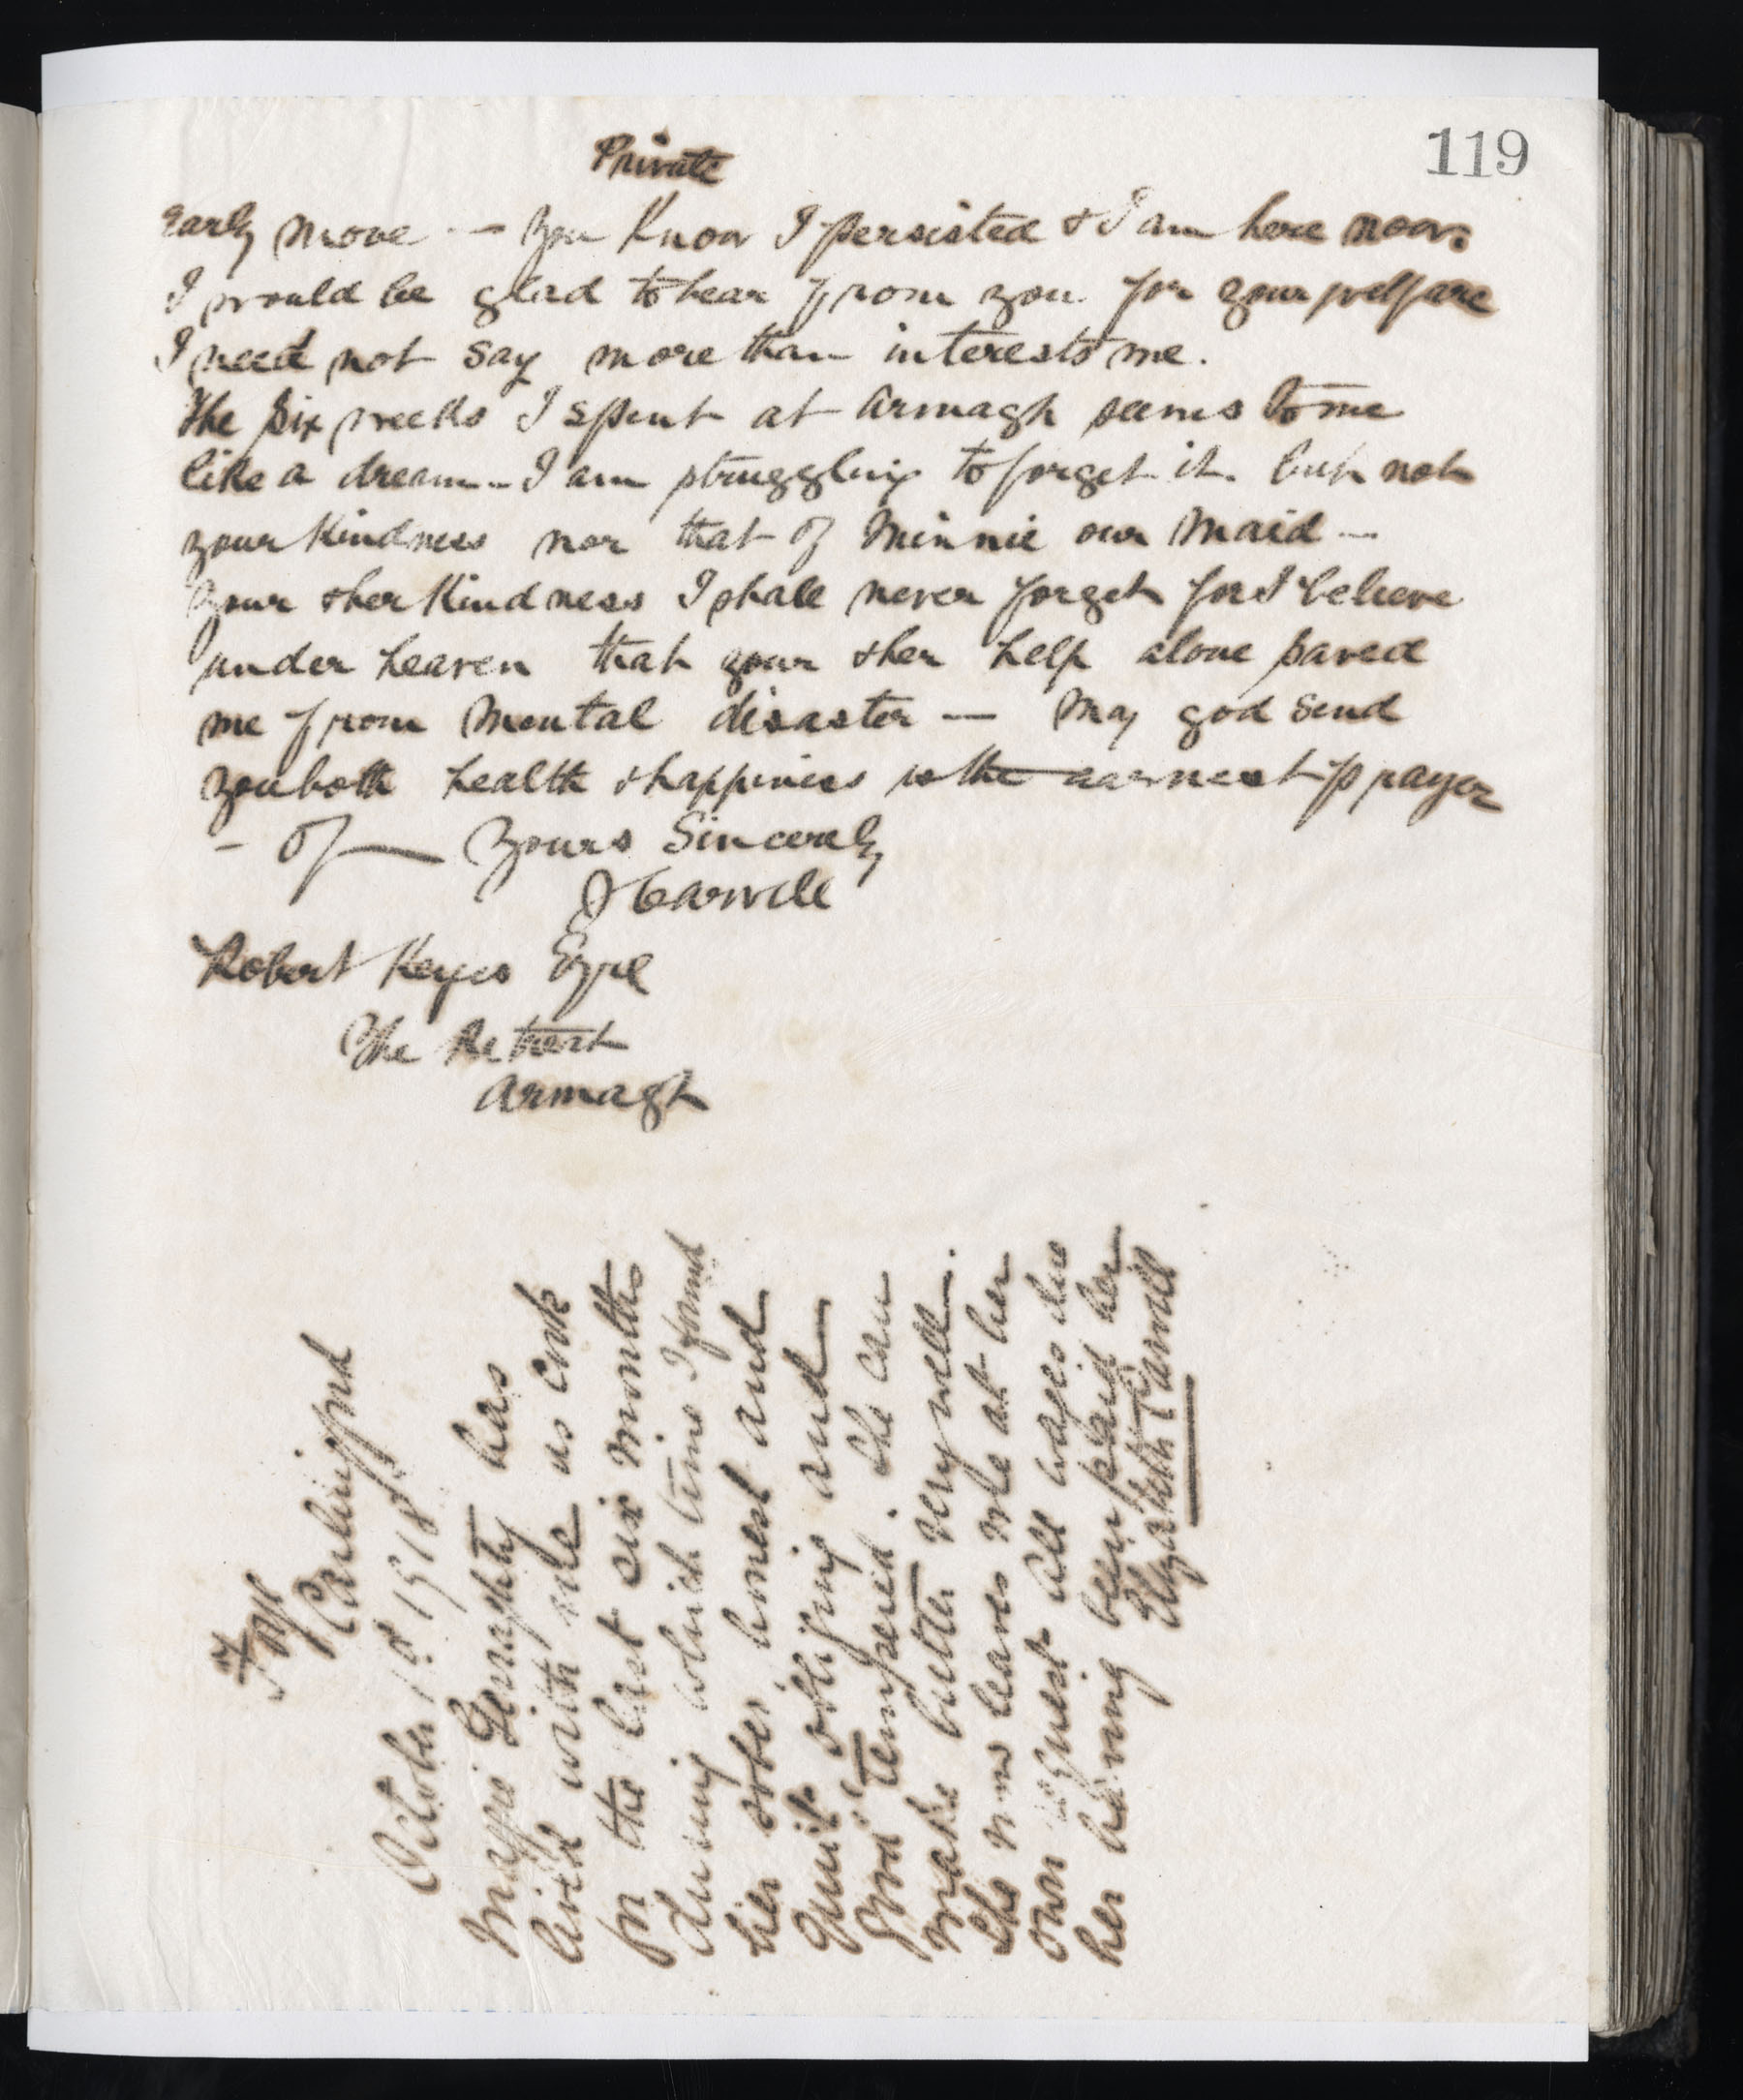 119
Private
Early move — you know I persisted & I am here now.
I would be glad to hear from you for your welfare
I need not say more than interests me.
The six weeks I spent at Armagh seems to me
like a dream — I am struggling to forget it. but not
your kindness nor that of Minnie our Maid —
your & her kindness I shall never forget for I believe
under heaven that your & her help alone saved
me from mental disaster — May god send
you both health & happiness is the earnest prayer
- of — Yours Sincerely
J Carvill
Robert Keyes Esqre
The Retreat
Armagh
Carlingford
October 18 1918
Maggie Geraghty has
lived with me as cook
for the last six months
during which time I found
her sober, honest and
quite obliging and
good tempered. She can
make butter very well.
She now leaves me at her
own request all wages due
her having been paid her
Elizabeth Carvill